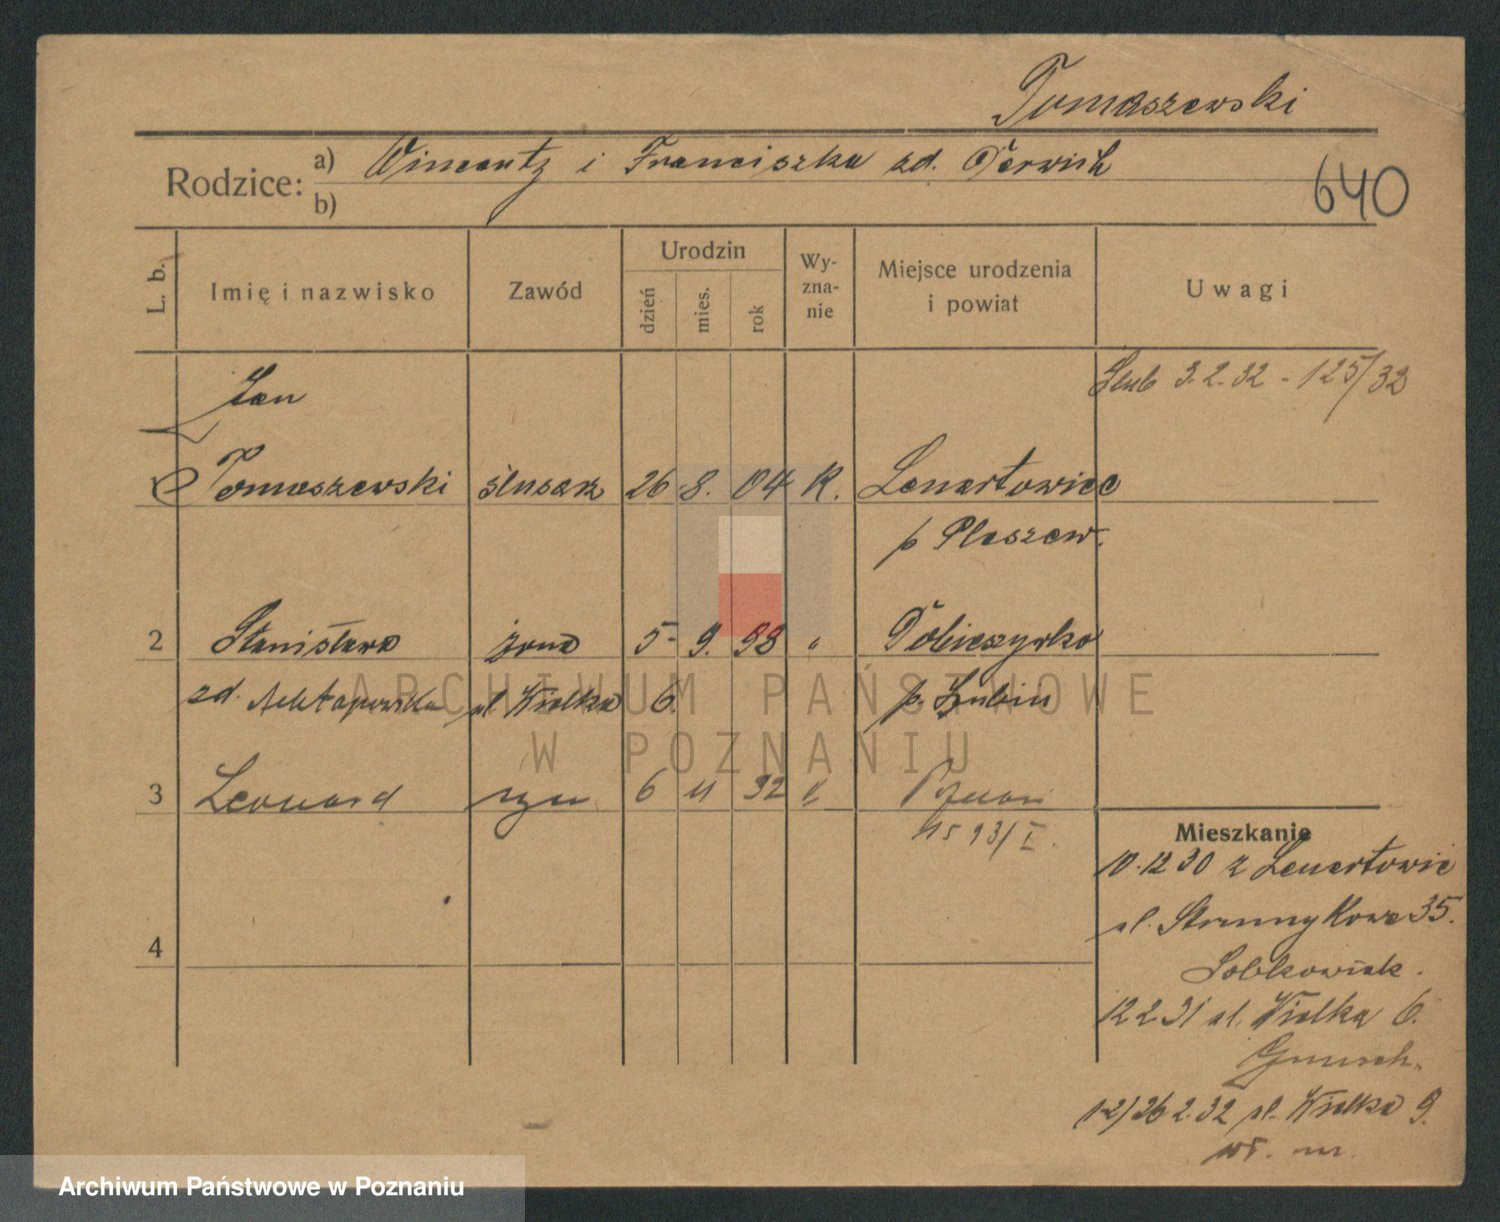 Tomaszewski
Rodzice: a) Wincenty i Franciszka zd.
b)
640
L. b. Imię i nazwisko Zawód Urodzin dzień mies. rok Wyznanie Miejsce urodzenia i powiat Uwagi
Jan Ślub 3.2.32 - 125/32
1 Tomaszewski ślusarz 26 8. 04 K. Lenartowice
p Pleszew.
2 Stanisława żona 5 - 9. 98 "
zd. ul. Wielka 6. p.
3 Leonard syn 6 11 32 " Poznań
1593/I.
Mieszkanie
10.12 30 z Lenartowic
ul. 35.
Sobkowiak.
12 2.31 ul. Wielka 6.
1-2/26 2.32 ul. Wielka 9.
4
ARCHIWUM PAŃSTWOWE
W POZNANIU
Archiwum Państwowe w Poznaniu